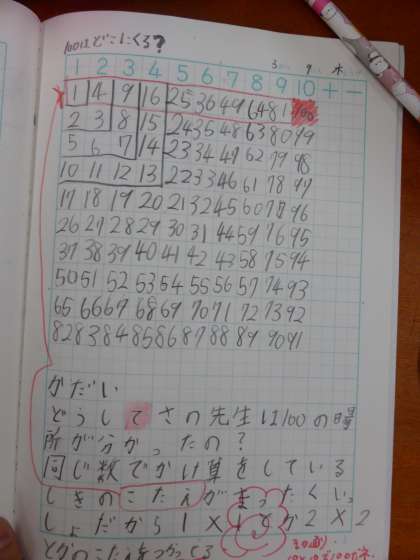 100はどこにくる?
3 9 木
1 2 3 4 5 6 7 8 9 10 + −
1 4 9 16 25 36 49 64 81 100
2 3 8 15 24 35 48 63 80 99
5 6 7 14 23 34 47 62 79 98
10 11 12 13 22 33 46 61 78 97
17 18 19 20 21 32 45 60 77 96
26 27 28 29 30 31 44 59 76 95
37 38 39 40 41 42 43 58 75 94
50 51 52 53 54 55 56 57 74 93
65 66 67 68 69 70 71 72 73 92
82 83 84 85 86 87 88 89 90 91
かだい
どうしてさの先生は100の場
所が分かったの?
同じ数でかけ算をしている
しきのこたえがまったくいっ
しょだから1×1とか2×2
とかのこたえを